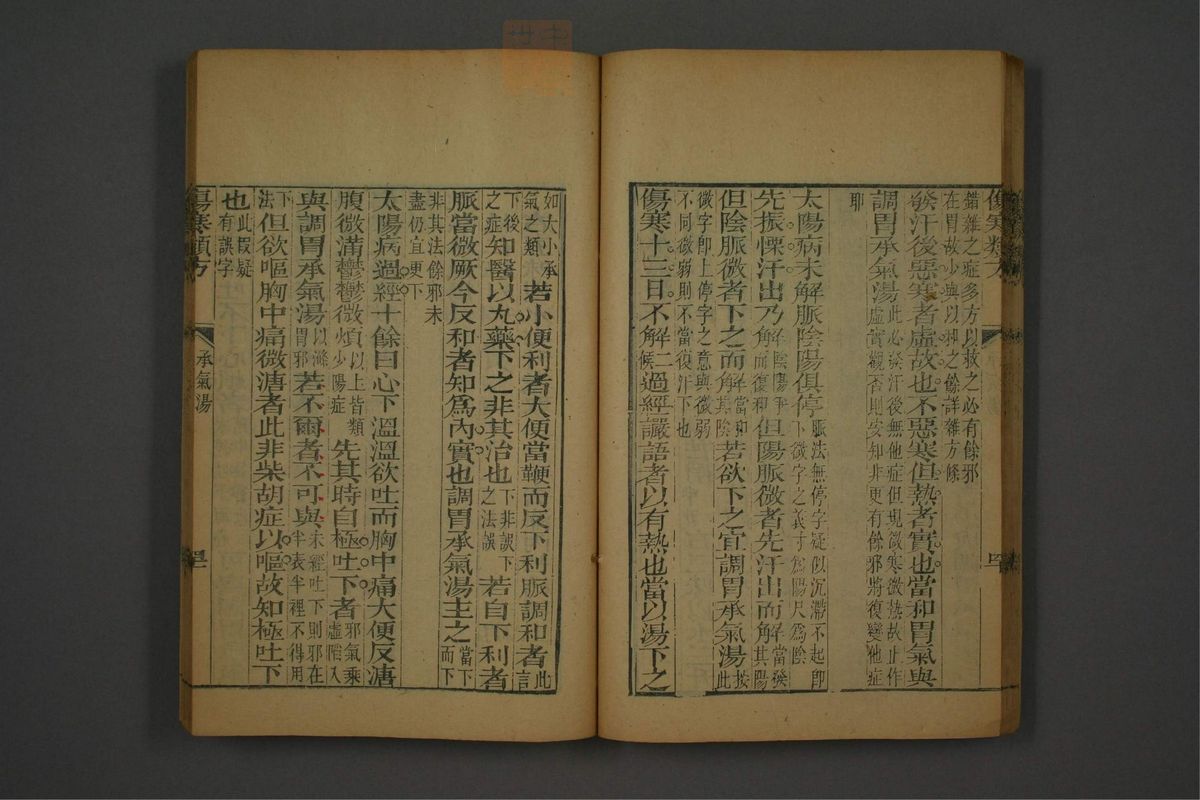 傷寒類方
錯雜之症多方以救之必有餘邪
在胃故少與以和之餘詳雜方條
發汗後惡寒者虛故也不惡寒但熱者實也當和胃氣與
調胃承氣湯此必發汗後無他症但現微寒微熱故止作
虛實觀否則安知非更有餘邪將復變他症
耶
太陽病未解脈陰陽俱停脈法無停字疑似沉滯不起即
下微字之義寸為陽尺為陰
先振慄汗出乃解陰陽爭
而復和但陽脈微者先汗出而解當發
其陽
但陰脈微者下之而解當和
其陰若欲下之宜調胃承氣湯按
此
微字即上停字之意與微弱
不同微弱則不當復汗下也
傷寒十三日不解二
候過經讝語者以有熱也當以湯下之
如大小承
氣之類若小便利者大便當鞕而反下利脈調和者此
言
下後
之症知醫以丸藥下之非其治也下非誤下
之法誤若自下利者
脈當微厥今反和者知為內實也調胃承氣湯主之當下
而下
非其法餘邪未
盡仍宜更下
太陽病過經十餘日心下溫溫欲吐而胸中痛大便反溏
腹微滿鬱鬱微煩以上皆類
少陽症先其時自極吐下者邪氣乘
虛陷入
與調胃承氣湯以滌
胃邪若不爾者不可與未經吐下則邪在
半表半裡不得用
下
法但欲嘔胸中痛微溏者此非柴胡症以嘔故知極吐下
也此段疑
有誤字
傷寒類方
承氣湯